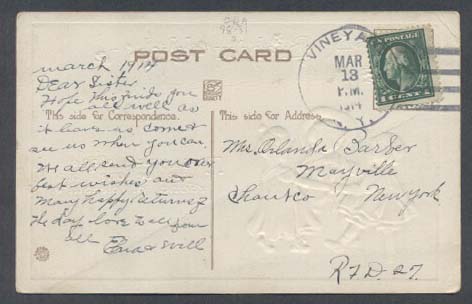 POST CARD
VINEYA
MAR
13
P.M.
1914
N.Y.
1 CENT 1
march 1914
Dear Sister
Hope this finds you
all well as
This side for Correspondence.
it leaves us come &
see us when you can.
We all send you our
best wishes and
Many happy returns of
the day love to all from
all Ena & Will
This side for Address.
Mrs. Orlanda Barber
Mayville
Chautco Newyork
R.F.D. 27.